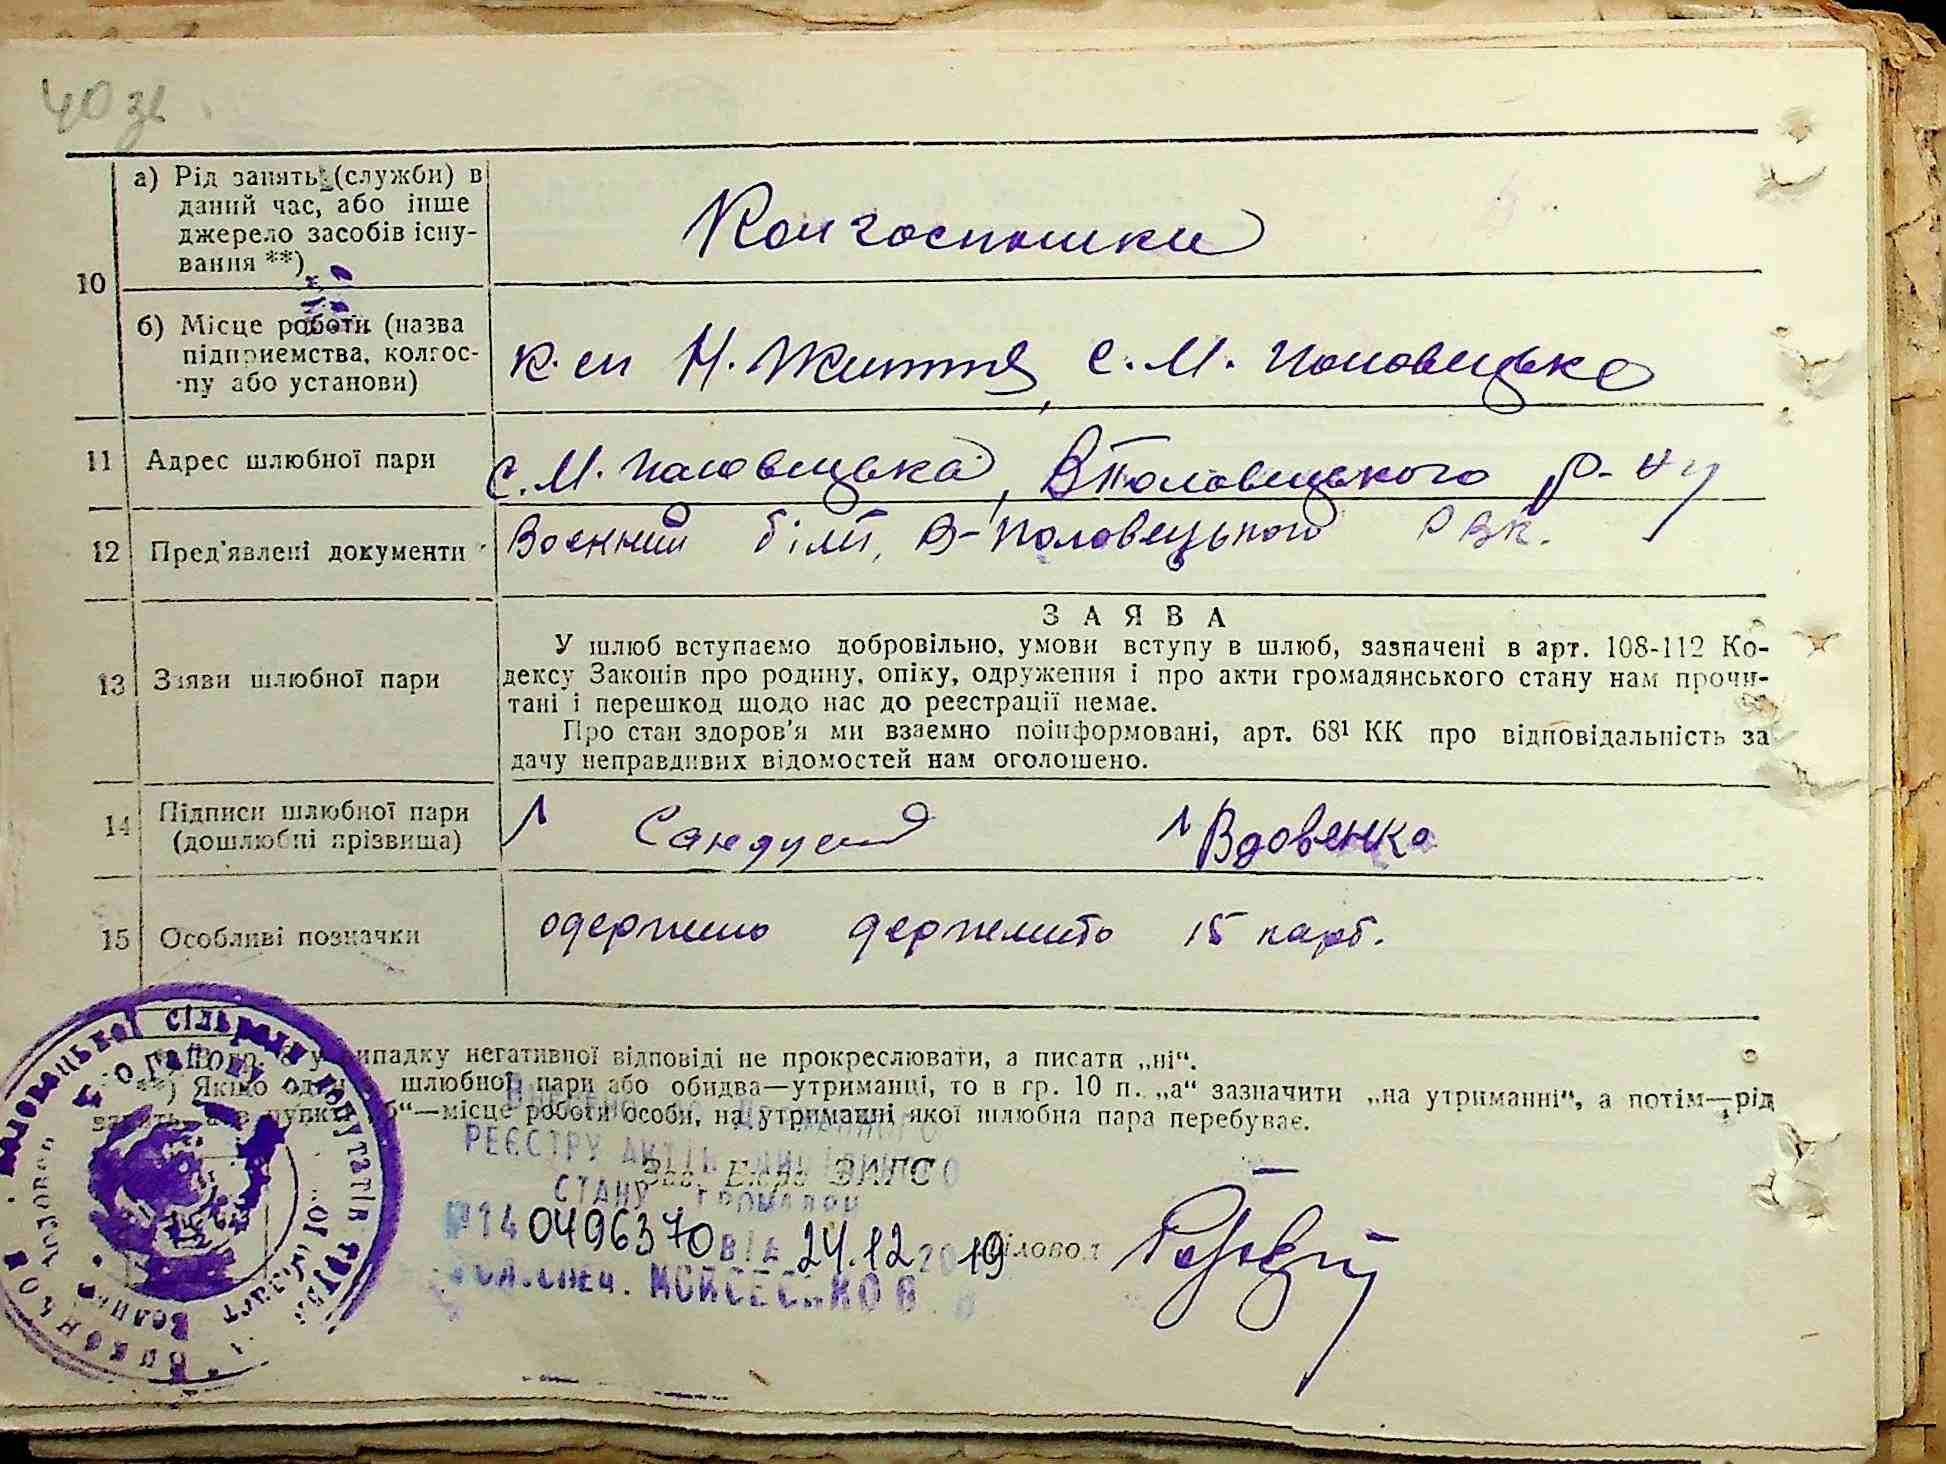 40 зв
а) Рід занять (служби) в
даний час, або інше
джерело засобів існу-
вання **)
Колгоспники
10
б) Місце роботи (назва
підприємства, колгос-
пу або установи)
к-сп Н. Життя, с. М. Половецьке
11 Адрес шлюбної пари
с. М. Половецька, В Половецького р-ну
12 Пред'явлені документи
Воєнний білет, В-Половецького РВК.
13 Заяви шлюбної пари
ЗАЯВА
У шлюб вступаємо добровільно, умови вступу в шлюб, зазначені в арт. 108-112 Ко-
дексу Законів про родину, опіку, одруження і про акти громадянського стану нам прочи-
тані і перешкод щодо нас до реєстрації немає.
Про стан здоров'я ми взаємно поінформовані, арт. 68¹ КК про відповідальність за
дачу неправдивих відомостей нам оголошено.
14 Підписи шлюбної пари
(дошлюбні прізвища)
Вдовенко
15 Особливі позначки
одержано держмито 15 карб.
у випадку негативної відповіді не прокреслювати, а писати „ні“.
**) Якщо один шлюбної пари або обидва—утриманці, то в гр. 10 п. „а“ зазначити „на утриманні“, а потім—рід
занять, а в пункті „б“—місце роботи особи, на утриманні якої шлюбна пара перебуває.
РЕЄСТРУ АКТІВ
Зав. Бюро ЗАГС
СТАНУ ГРОМАДЯН
0496370 від 24.12 2019
Діловод